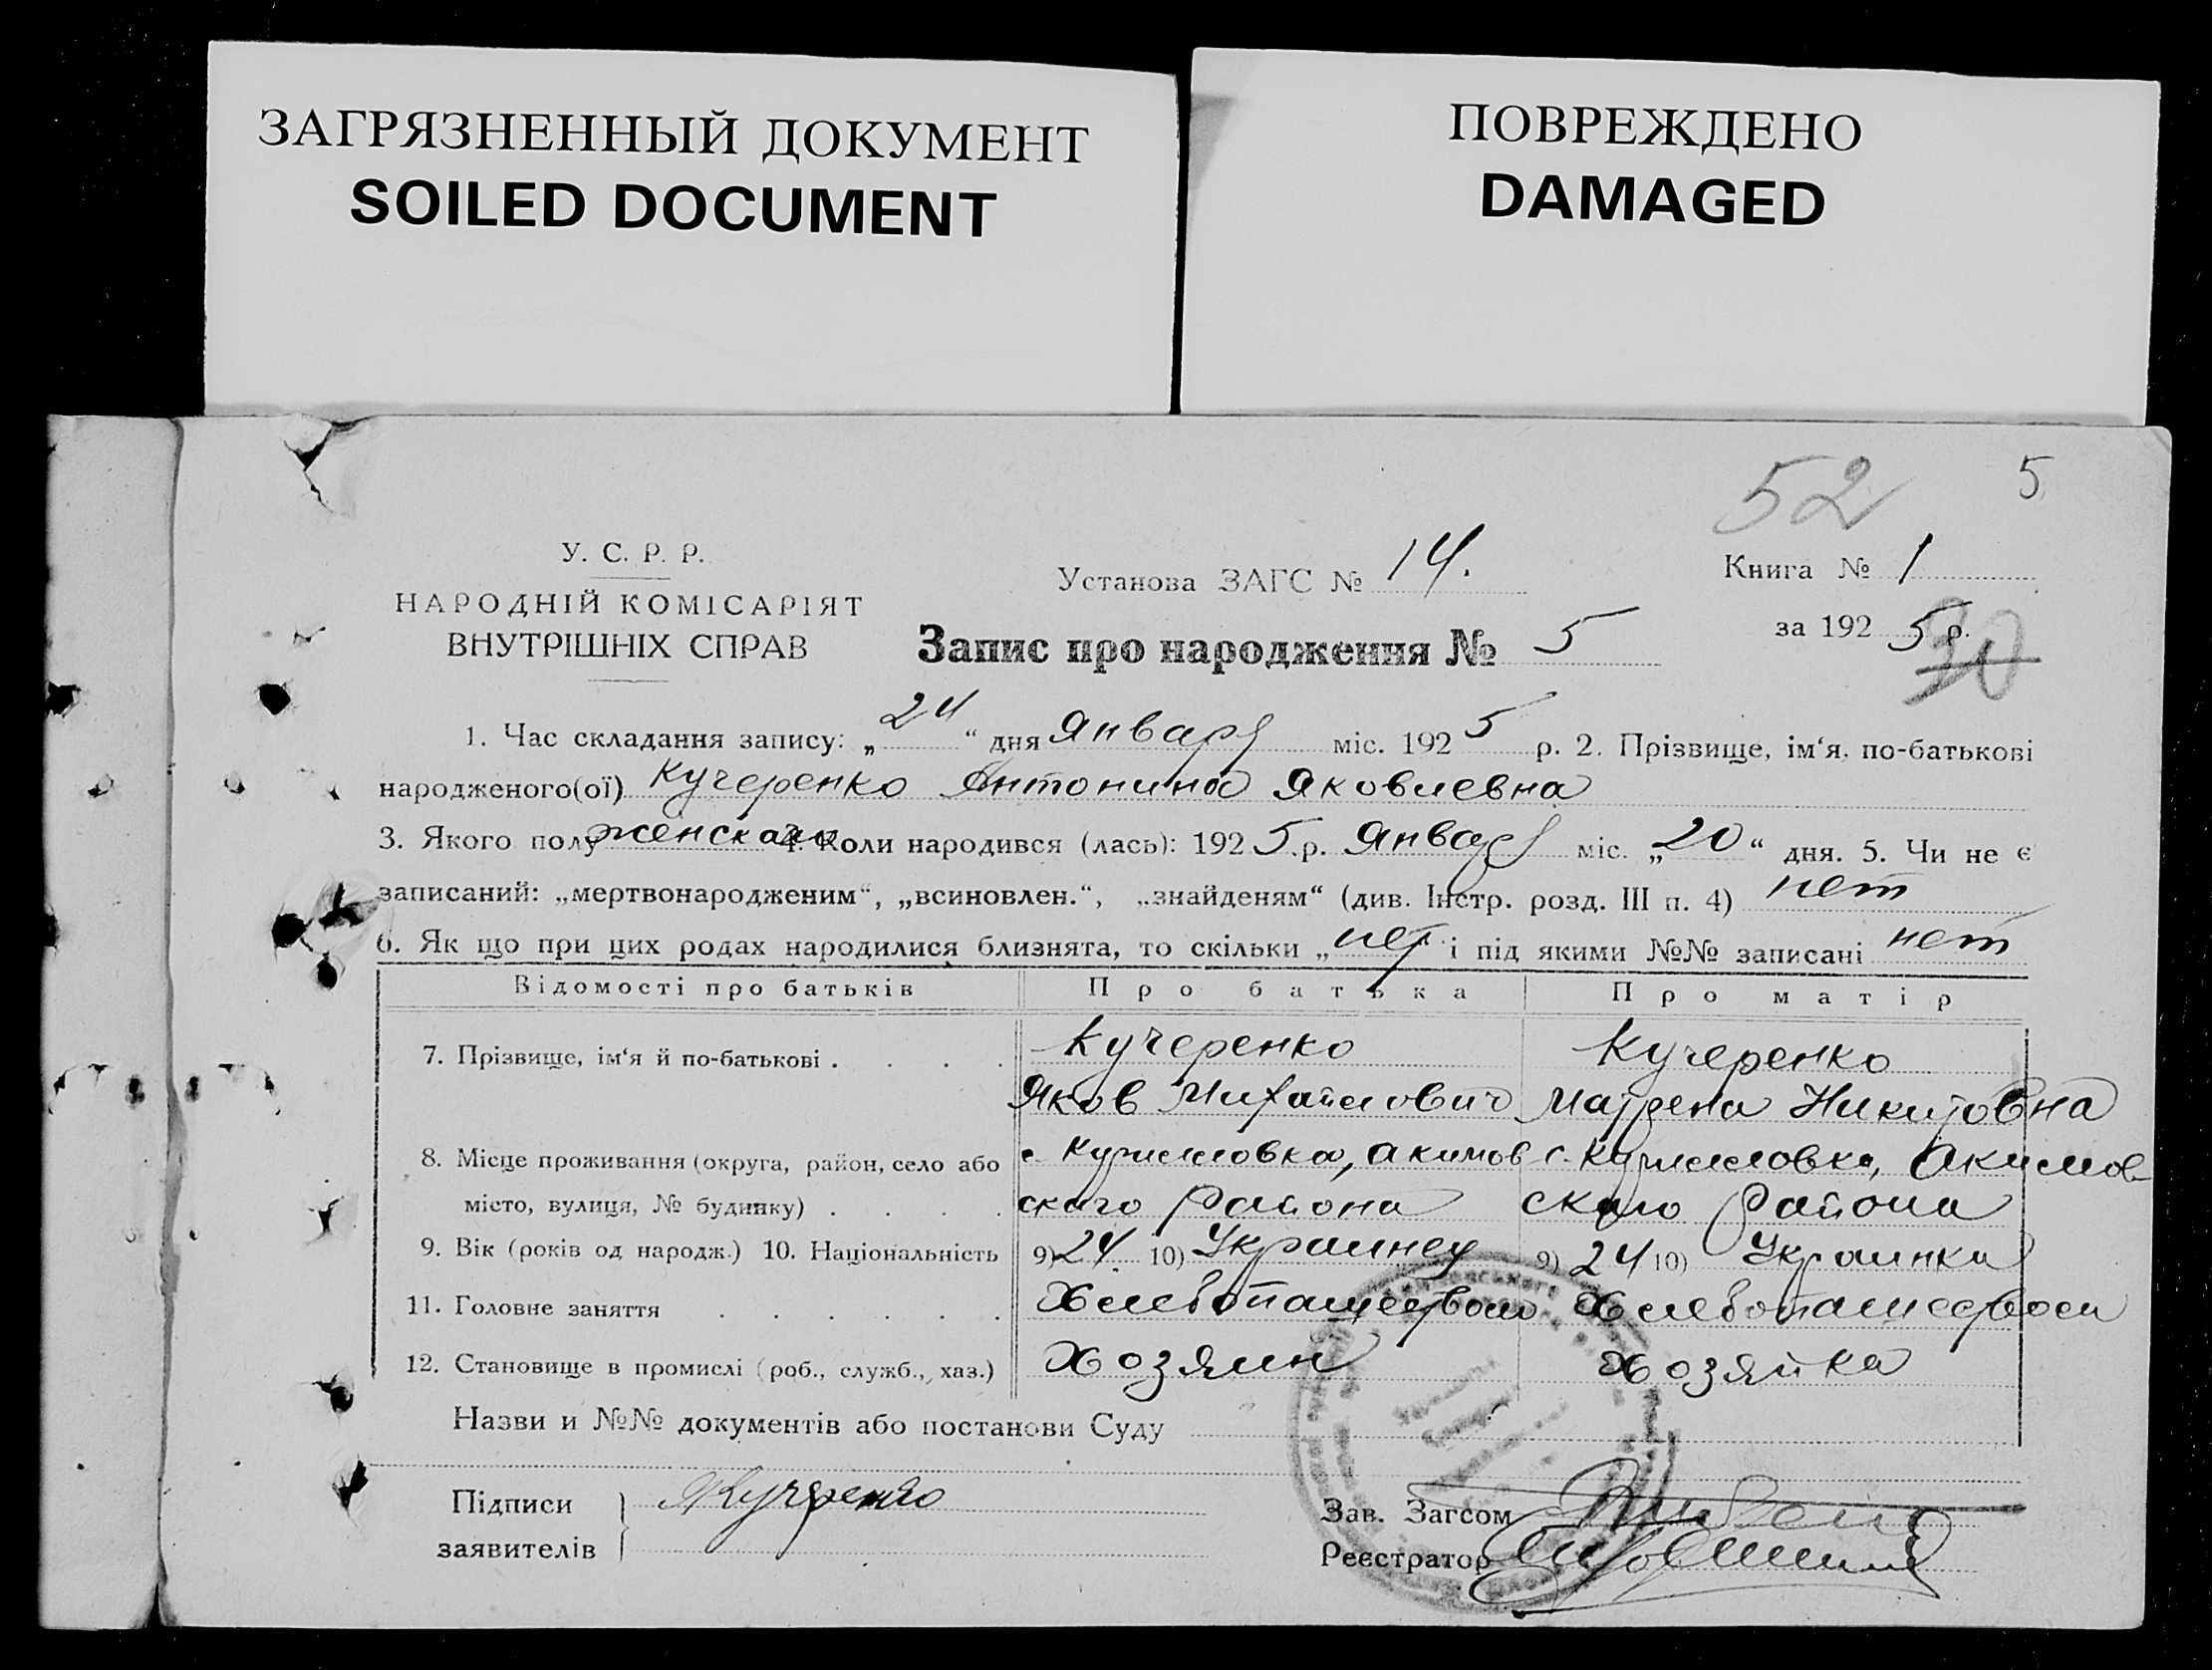 ЗАГРЯЗНЕННЫЙ ДОКУМЕНТ
SOILED DOCUMENT
ПОВРЕЖДЕНО
DAMAGED
52 5
У. С. Р. Р.
НАРОДНІЙ КОМІСАРІЯТ
ВНУТРІШНІХ СПРАВ
Установа ЗАГС № 14.
Книга № 1
за 192 5 р.
30
Запис про народження № 5
1. Час складання запису: „ 24 “ дня Января міс. 192 5 р. 2. Прізвище, ім‘я, по-батькові
народженого(ої) Кучеренко Антонина Яковлевна
3. Якого полу женскаго 4. Коли народився (лась): 192 5 р. Января міс. „ 20 “ дня. 5. Чи не є
записаний: „мертвонародженим“, „всиновлен.“, „знайденям“ (див. Інстр. розд. III п. 4) нет
6. Як що при цих родах народилися близнята, то скільки „ нет і під якими №№ записані нет
Відомості про батьків Про батька Про матір
7. Прізвище, ім‘я й по-батькові . . . . Кучеренко Кучеренко
Яков Михайлович Матрена Никитовна
8. Місце проживання (округа, район, село або с. Кирилловка, Акимов с. Кирилловка, Акимов-
місто, вулиця, № будинку) . . . . скаго Района скаго Района
9. Вік (років од народж.) 10. Національність 9) 24 10) Украинец 9) 24 10) Украинка
11. Головне заняття . . . . . . Хлебопашеством Хлебопашеством
12. Становище в промислі (роб., служб., хаз.) Хозяин Хозяйка
Назви и №№ документів або постанови Суду
Підписи ЯКучеренко
заявителів
Зав. Загсом
Реєстратор